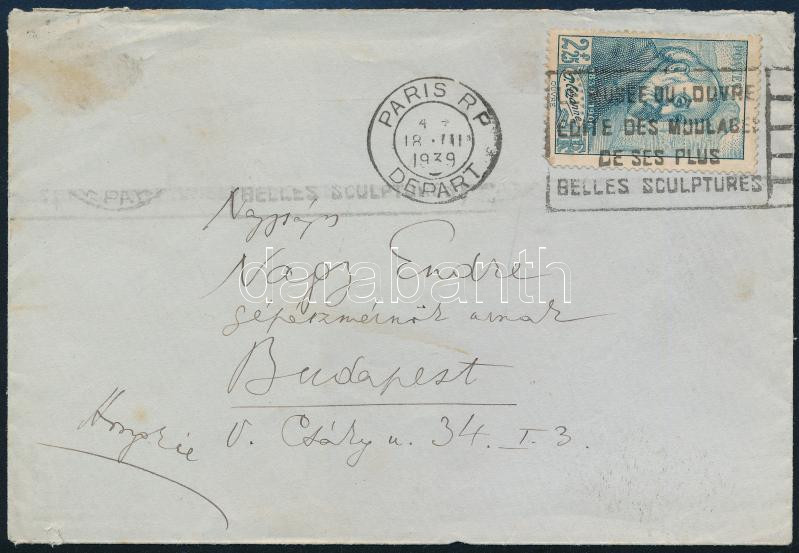 PARIS R.P
18 · III
1939
DEPART
POSTES
2F25
MUSEE DU LOUVRE
EDITE DES MOULAGES
DE SES PLUS
BELLES SCULPTURES
BELLES SCULPTURES
Nagyságos
Nagy Endre
gépészmérnök urnak
Budapest
V. Csáky u. 34. I. 3.
Hongrie
darabanth